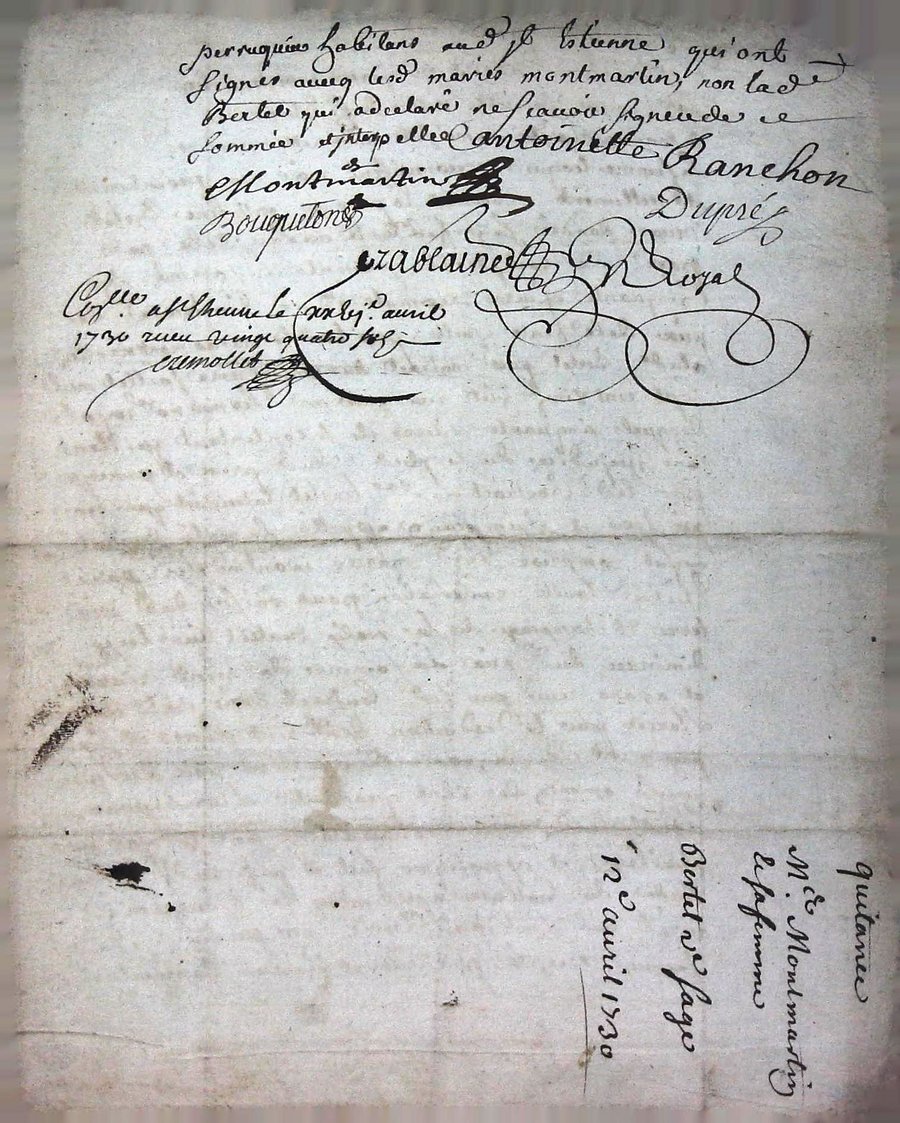 perruquier habitans aud st Estienne qui ont
signés avecq lesd mariés montmartin, non lad
Bertet qui a declaré ne scavoir signer de ce
sommée et interpellée antoinette Ranchon
Montmartin
Dupré
Bouquetond
Royal
Con.lle a st Estienne le xxvj.e avril
1730 receu vingt quatre sols
quitance
Mr. Montmartin
de sa femme
Bertet ve sage
12e avril 1730